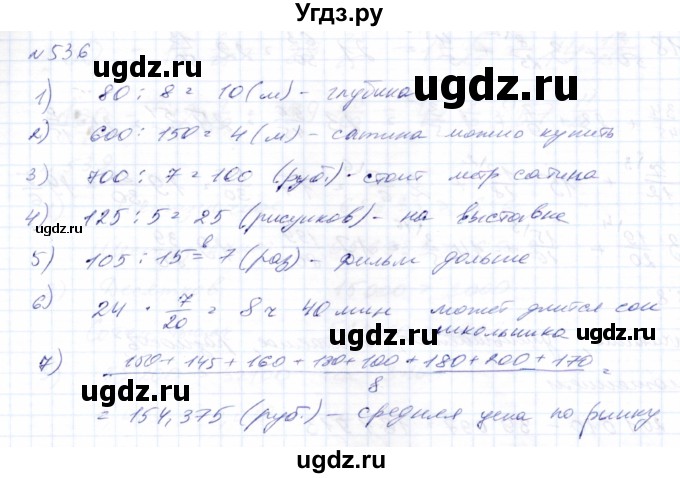 Угдз.ру
N 536
ugdz.ru ugdz.ru
1) 80 : 8 = 10 (м) - глубина
2) 600 : 150 = 4 (м) - сатина можно купить
3) 700 : 7 = 100 (руб.) - стоит метр сатина
ugdz.ru
4) 125 : 5 = 25 (рисунков) - на выставке
ugdz.ru
5) 105 : 15 = в 7 (раз) - фильм дольше
6) 24 · 7/20 = 8 ч 40 мин может длится сон
школьника
ugdz.ru
7) 150 + 145 + 160 + 130 + 100 + 180 + 200 + 170 / 8 =
= 154,375 (руб.) - средняя цена по рынку
ugdz.ru ugdz.ru
ugdz.ru